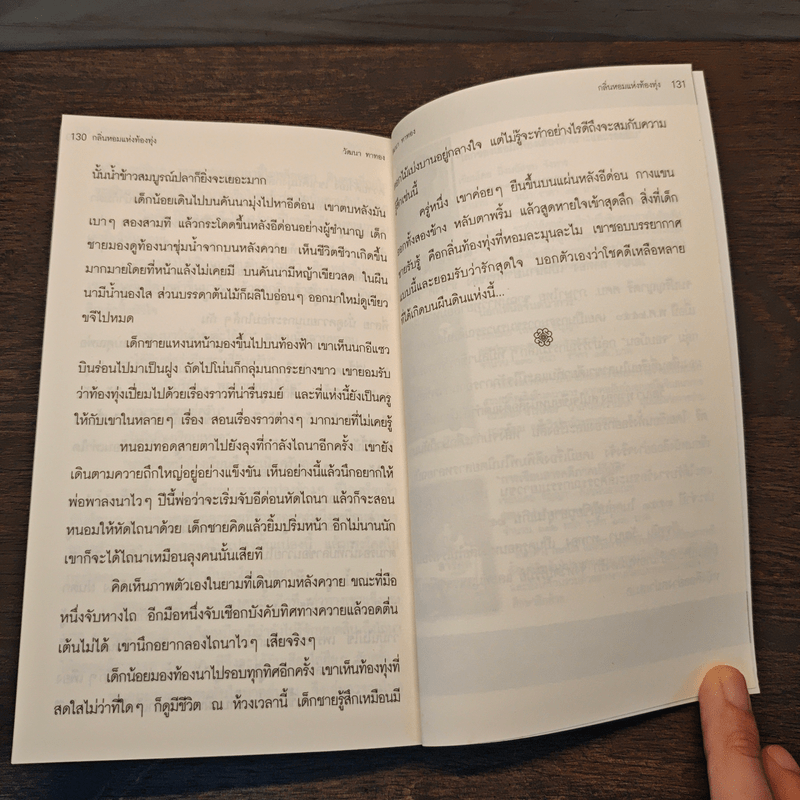 130 กลิ่นหอมแห่งท้องทุ่ง
วัฒนา ทาทอง
นั้นน้ำข้าวสมบูรณ์ปลาก็ยิ่งจะเยอะมาก
เด็กน้อยเดินไปบนคันนามุ่งไปหาอีด่อน เขาตบหลังมัน
เบาๆ สองสามที แล้วกระโดดขึ้นหลังอีด่อนอย่างผู้ชำนาญ เด็ก
ชายมองดูท้องนาชุ่มน้ำจากบนหลังควาย เห็นชีวิตชีวาเกิดขึ้น
มากมายโดยที่หน้าแล้งไม่เคยมี บนคันนามีหญ้าเขียวสด ในผืน
นามีน้ำนองใส ส่วนบรรดาต้นไม้ก็ผลิใบอ่อนๆ ออกมาใหม่ดูเขียว
ขจีไปหมด
เด็กชายแหงนหน้ามองขึ้นไปบนท้องฟ้า เขาเห็นนกอีแซว
บินร่อนไปมาเป็นฝูง ถัดไปโน่นก็กลุ่มนกกระยางขาว เขายอมรับ
ว่าท้องทุ่งเปี่ยมไปด้วยเรื่องราวที่น่ารื่นรมย์ และที่แห่งนี้ยังเป็นครู
ให้กับเขาในหลายๆ เรื่อง สอนเรื่องราวต่างๆ มากมายที่ไม่เคยรู้
หนอมทอดสายตาไปยังลุงที่กำลังไถนาอีกครั้ง เขายัง
เดินตามควายถึกใหญ่อยู่อย่างแข็งขัน เห็นอย่างนี้แล้วนึกอยากให้
พ่อพาลงนาไวๆ ปีนี้พ่อว่าจะเริ่มจับอีด่อนหัดไถนา แล้วก็จะสอน
หนอมให้หัดไถนาด้วย เด็กชายคิดแล้วยิ้มปริ่มหน้า อีกไม่นานนัก
เขาก็จะได้ไถนาเหมือนลุงคนนั้นเสียที
คิดเห็นภาพตัวเองในยามที่เดินตามหลังควาย ขณะที่มือ
หนึ่งจับหางไถ อีกมือหนึ่งจับเชือกบังคับทิศทางควายแล้วอดตื่น
เต้นไม่ได้ เขานึกอยากลองไถนาไวๆ เสียจริงๆ
เด็กน้อยมองท้องนาไปรอบทุกทิศอีกครั้ง เขาเห็นท้องทุ่งที่
สดใสไม่ว่าที่ใดๆ ก็ดูมีชีวิต ณ ห้วงเวลานี้ เด็กชายรู้สึกเหมือนมี
กลิ่นหอมแห่งท้องทุ่ง 131
ทาทอง
ดอกไม้เบ่งบานอยู่กลางใจ แต่ไม่รู้จะทำอย่างไรดีถึงจะสมกับความ
รู้สึกเช่นนี้
ครู่หนึ่ง เขาค่อยๆ ยืนขึ้นบนแผ่นหลังอีด่อน กางแขน
ออกทั้งสองข้าง หลับตาพริ้ม แล้วสูดหายใจเข้าสุดลึก สิ่งที่เด็ก
ชายรับรู้ คือกลิ่นท้องทุ่งที่หอมละมุนละไม เขาชอบบรรยากาศ
แบบนี้และยอมรับว่ารักสุดใจ บอกตัวเองว่าโชคดีเหลือหลาย
ที่ได้เกิดบนผืนดินแห่งนี้...